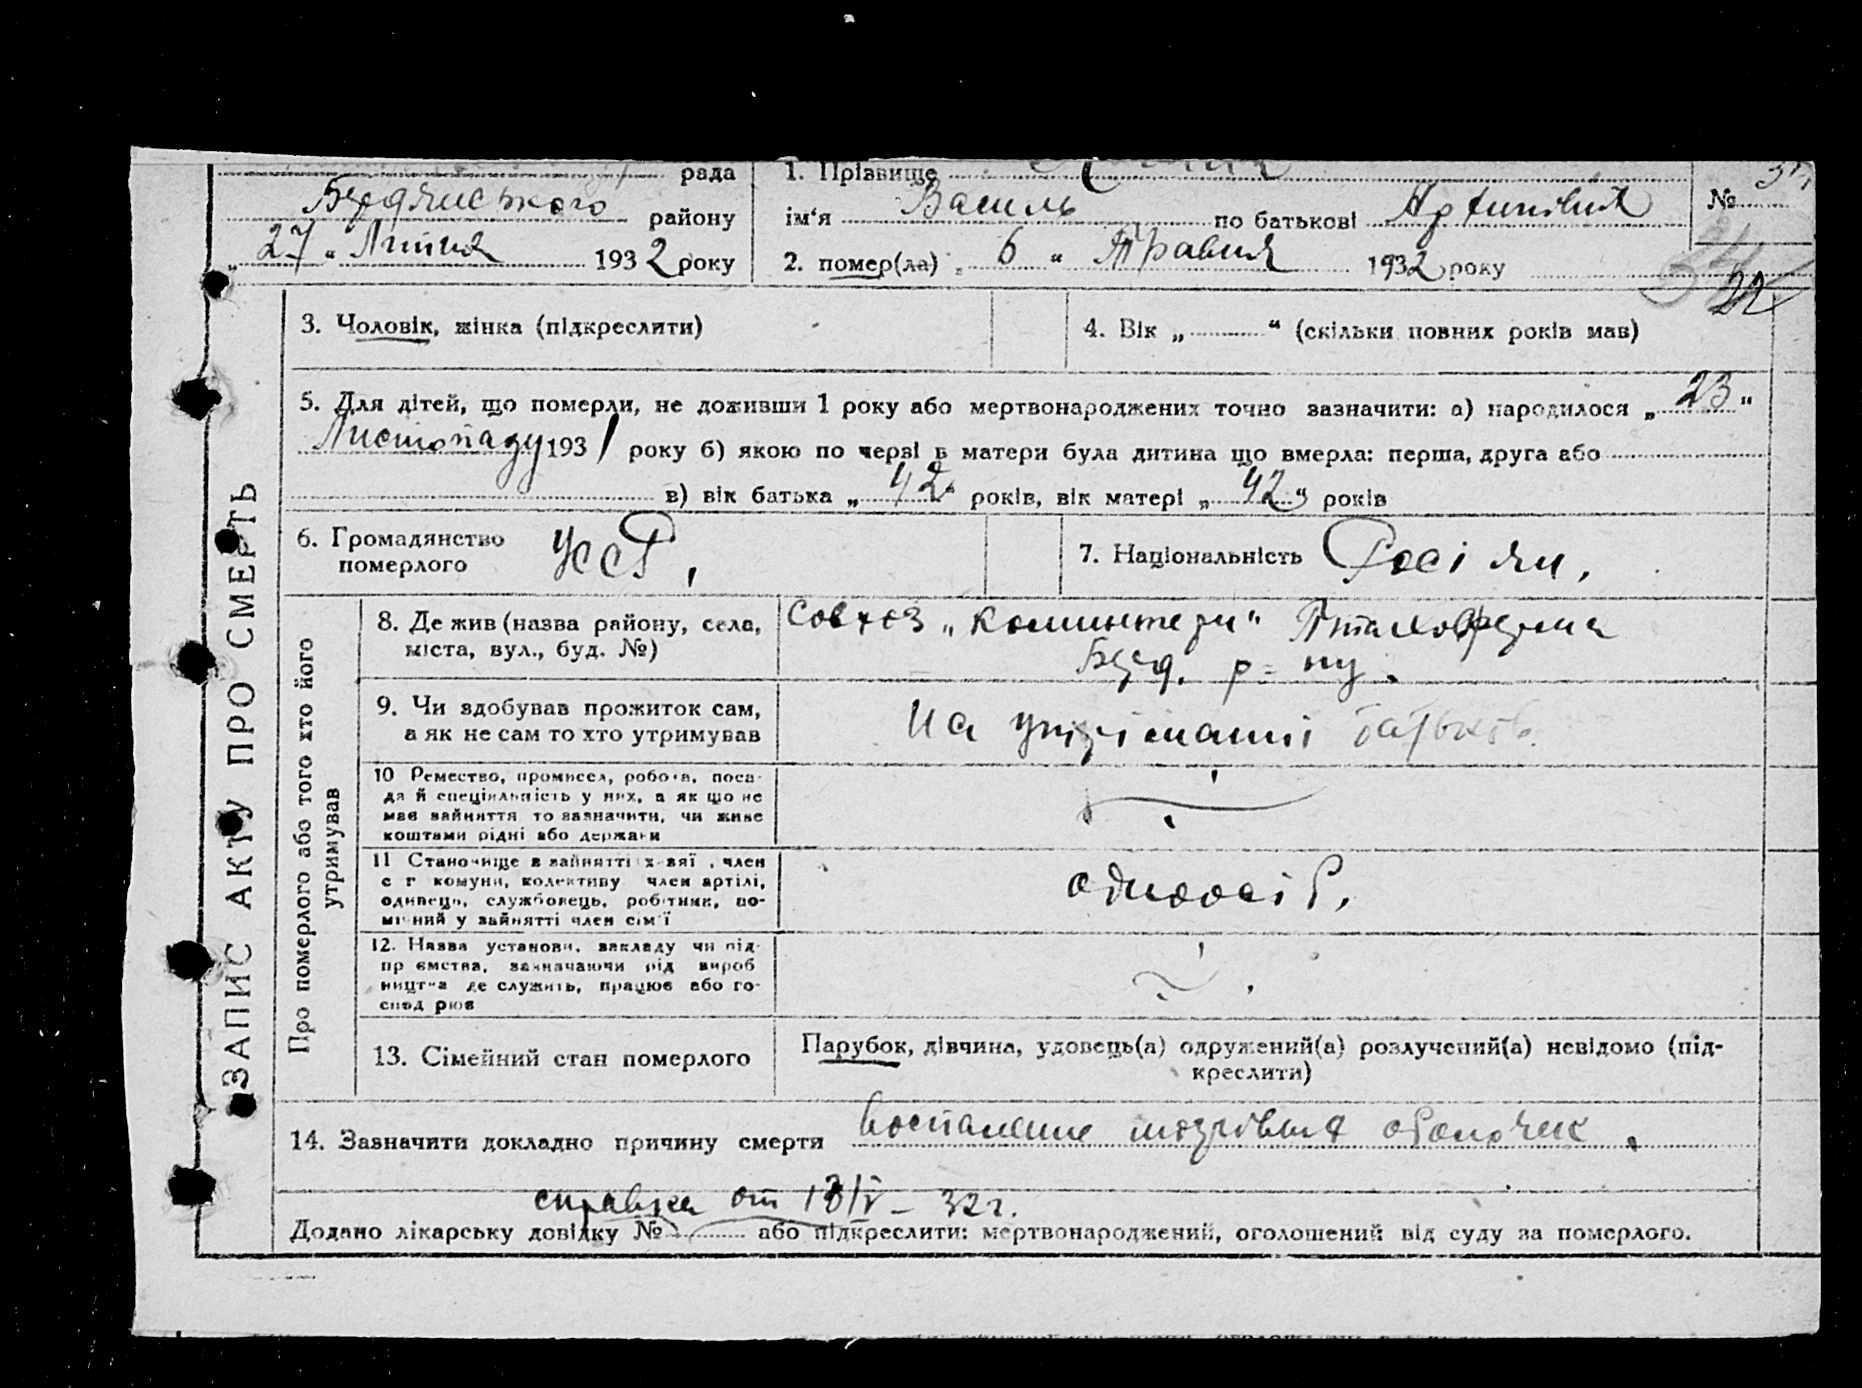 рада
Бердянського району
„27“ Липня 1932 року
1. Прізвище
ім‘я Василь по батькові Архипович
№
2. помер(ла) „6“ Травня 1932 року
22
3. Чоловік, жінка (підкреслити)
4. Вік „ “ (скільки повних років мав)
5. Для дітей, що померли, не доживши 1 року або мертвонароджених точно зазначити: а) народилося „23“
Листопаду 1931 року б) якою по черві в матери була дитина що вмерла: перша, друга або
в) вік батька „42“ років, вік матері „42“ років
6. Громадянство
померлого
УССР,
7. Національність Росіян,
ЗАПИС АКТУ ПРО СМЕРТЬ
Про померлого або того хто його
утримував
8. Де жив (назва району, села,
міста, вул., буд. №)
Совхоз „Коминтерн“
Берд. р=ну.
9. Чи здобував прожиток сам,
а як не сам то хто утримував
На утріманні батьків.
10 Ремество, промисел, робота, поса-
да й спеціяльність у них, а як що не
має зайняття то зазначити, чи живе
коштами рідні або держави
11 Становище в зайнятті член
с г комуни, колективу член артілі,
одинець, службовець, робітник, по-
мічний у зайнятті член сім'ї
одноосіб,
12. Назва установи, закладу чи під-
пр ємства, зазначаючи рід вироб
ництва де служить, працює або го-
спод рює
13. Сімейний стан померлого
Парубок, дівчина, удовець(а) одружений(а) розлучений(а) невідомо (під-
креслити)
14. Зазначити докладно причину смерти воспаление мозговых оболочек.
справка от 13/V – 32 г.
Додано лікарську довідку № або підкреслити: мертвонароджений, оголошений від суду за померлого.